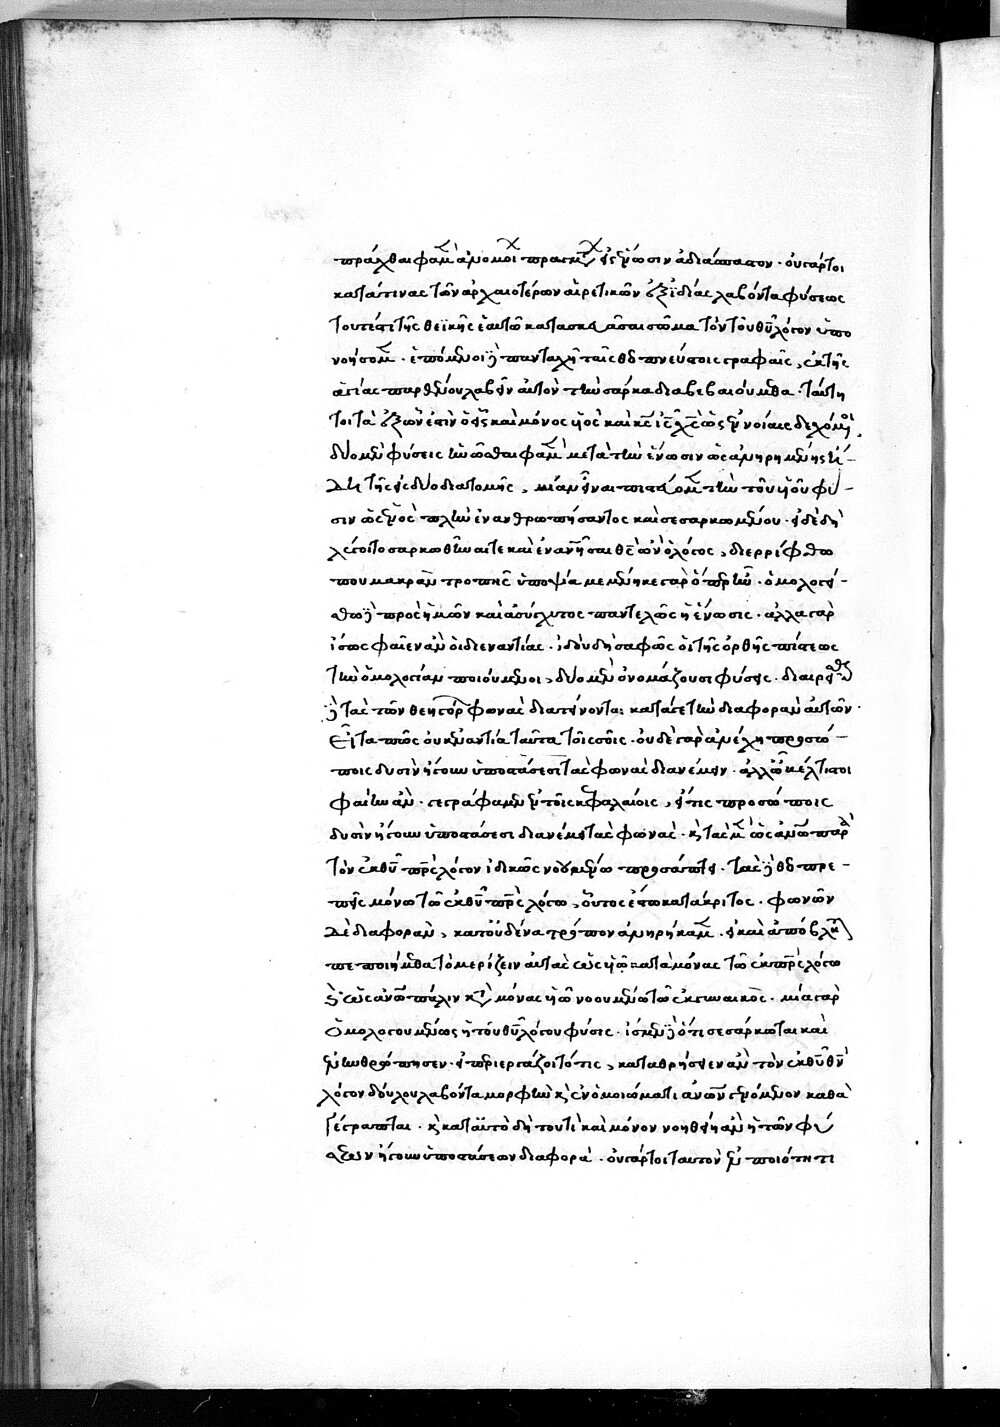 πρᾶχθαι φαμὲν ἀνομοι πραγμ εἰς ἕνωσιν ἀδιάσπαστον · οὐ γάρ τοι
κατά τινας τῶν ἀρχαιοτέρων αἱρετικῶν ἐξ ἰδίας λαβόντα φύσεως
τουτέστι τῆς θεϊκῆς ἑαυτῶ κατασκευάσαι σῶμα τὸν τοῦ θεοῦ λόγον ὑπο
νοήσομεν · ἑπόμενοι δὲ πανταχῆ ταῖς θεοπνεύστοις γραφαῖς, ἐκ τῆς
ἁγίας παρθένου λαβεῖν αὐτὸν τὴν σάρκα διαβεβαιούμεθα · ταύτη
τοι τὰ ἐξ ὧν ἐστὶν ὁ εἷς καὶ μόνος υἱὸς καὶ κς ις χς ὡς ἐν ἐννοίαις δεχόμενοι
δύο μὲν φύσεις ἡνῶσθαι φαμὲν μετὰ τὴν ἕνωσιν ὡς ἀνηρημένης ἤ-
δη τῆς εἰς δύο διατομῆς, μίαν εἶναι πιστεύομεν τὴν τοῦ υἱοῦ φύ-
σιν ὡς ἑνὸς πλὴν ἐνανθρωπήσαντος καὶ σεσαρκωμένου · εἰ δὲ δὴ
λέγοιτο σαρκωθῆναι τε καὶ ἐνανθρωπῆσαι θς ὢν ὁ λόγος, διερρίφθω
που μακρὰν τροπῆς ὑποψία μεμένηκε γὰρ ὅπερ ἦν · ὁμολογεί-
σθω δὲ πρὸς ἡμῶν καὶ ἀσύγχυτος παντελῶς ἡ ἕνωσις · ἀλλὰ γὰρ
ἴσως φαῖεν ἂν οἱ δι ἐναντίας · ἰδοὺ δὴ σαφῶς οἱ τῆς ὀρθῆς πίστεως
τὴν ὁμολογίαν ποιούμενοι, δύο μὲν ὀνομάζουσι φύσεις · διαιρεῖσθαι
δὲ τὰς τῶν θεηγόρων φωνὰς διατείνονται κατά γε τὴν διαφορὰν αὐτῶν ·
Εἶτα πῶς οὐκ ἐναντία ταῦτα τοῖς σοῖς · οὐδὲ γὰρ ἀνέχη προσώ-
ποις δυσὶν ἤγουν ὑποστάσεσι τὰς φωνὰς διανέμειν · ἀλλ ὦ βέλτιστοι
φαίην ἂν · γεγράφαμεν ἐν τοῖς κεφαλαίοις, εἴ τις προσώποις
δυσὶν ἤγουν ὑποστάσεσι διανέμει τὰς φωνὰς · κ τὰς μὲν ὡς ἀνω παρὰ
τὸν ἐκ θυ πρς λόγον ἰδικῶς νοουμένω προσάπτει · τὰς δὲ ὡς θεοπρε-
πεῖς μόνω τῶ ἐκ θυ πρς λόγω, οὗτος ἔστω κατάκριτος · φωνῶν
δὲ διαφορὰν, κατ οὐδένα τρόπον ἀνηρήκαμεν · εἰ καὶ ἀπόβλητον
πεποιήμεθα τὸ μερίζειν αὐτὰς ὡς υἱῶ καταμόνας τῶ ἐκ πρς λόγω
κ ὡς ἀνω πάλιν κατὰ μόνας υἱῶ νοουμένω τῶ ἐκ γυναικὸς · μία γὰρ
ὁμολογουμένως ἡ τοῦ θυ λόγου φύσις · ἴσμεν δὲ ὅτι σεσάρκωται καὶ
ἐνηνθρώπησεν · εἰ περιεργάζοιτό τις, καταθρήσειεν ἂν τὸν ἐκ θυ θν
λόγον δούλου λαβόντα μορφὴν κ ἐν ὁμοιώματι ἀνων γενόμενον καθὰ
γέγραπται · κ κατ αὐτὸ δὴ τουτὶ καὶ μόνον νοηθείη ἂν ἡ τῶν φύ
σεων ἤγουν ὑποστάσεων διαφορά · οὐ γάρ τοι ταυτὸν ἐν ποιότητι